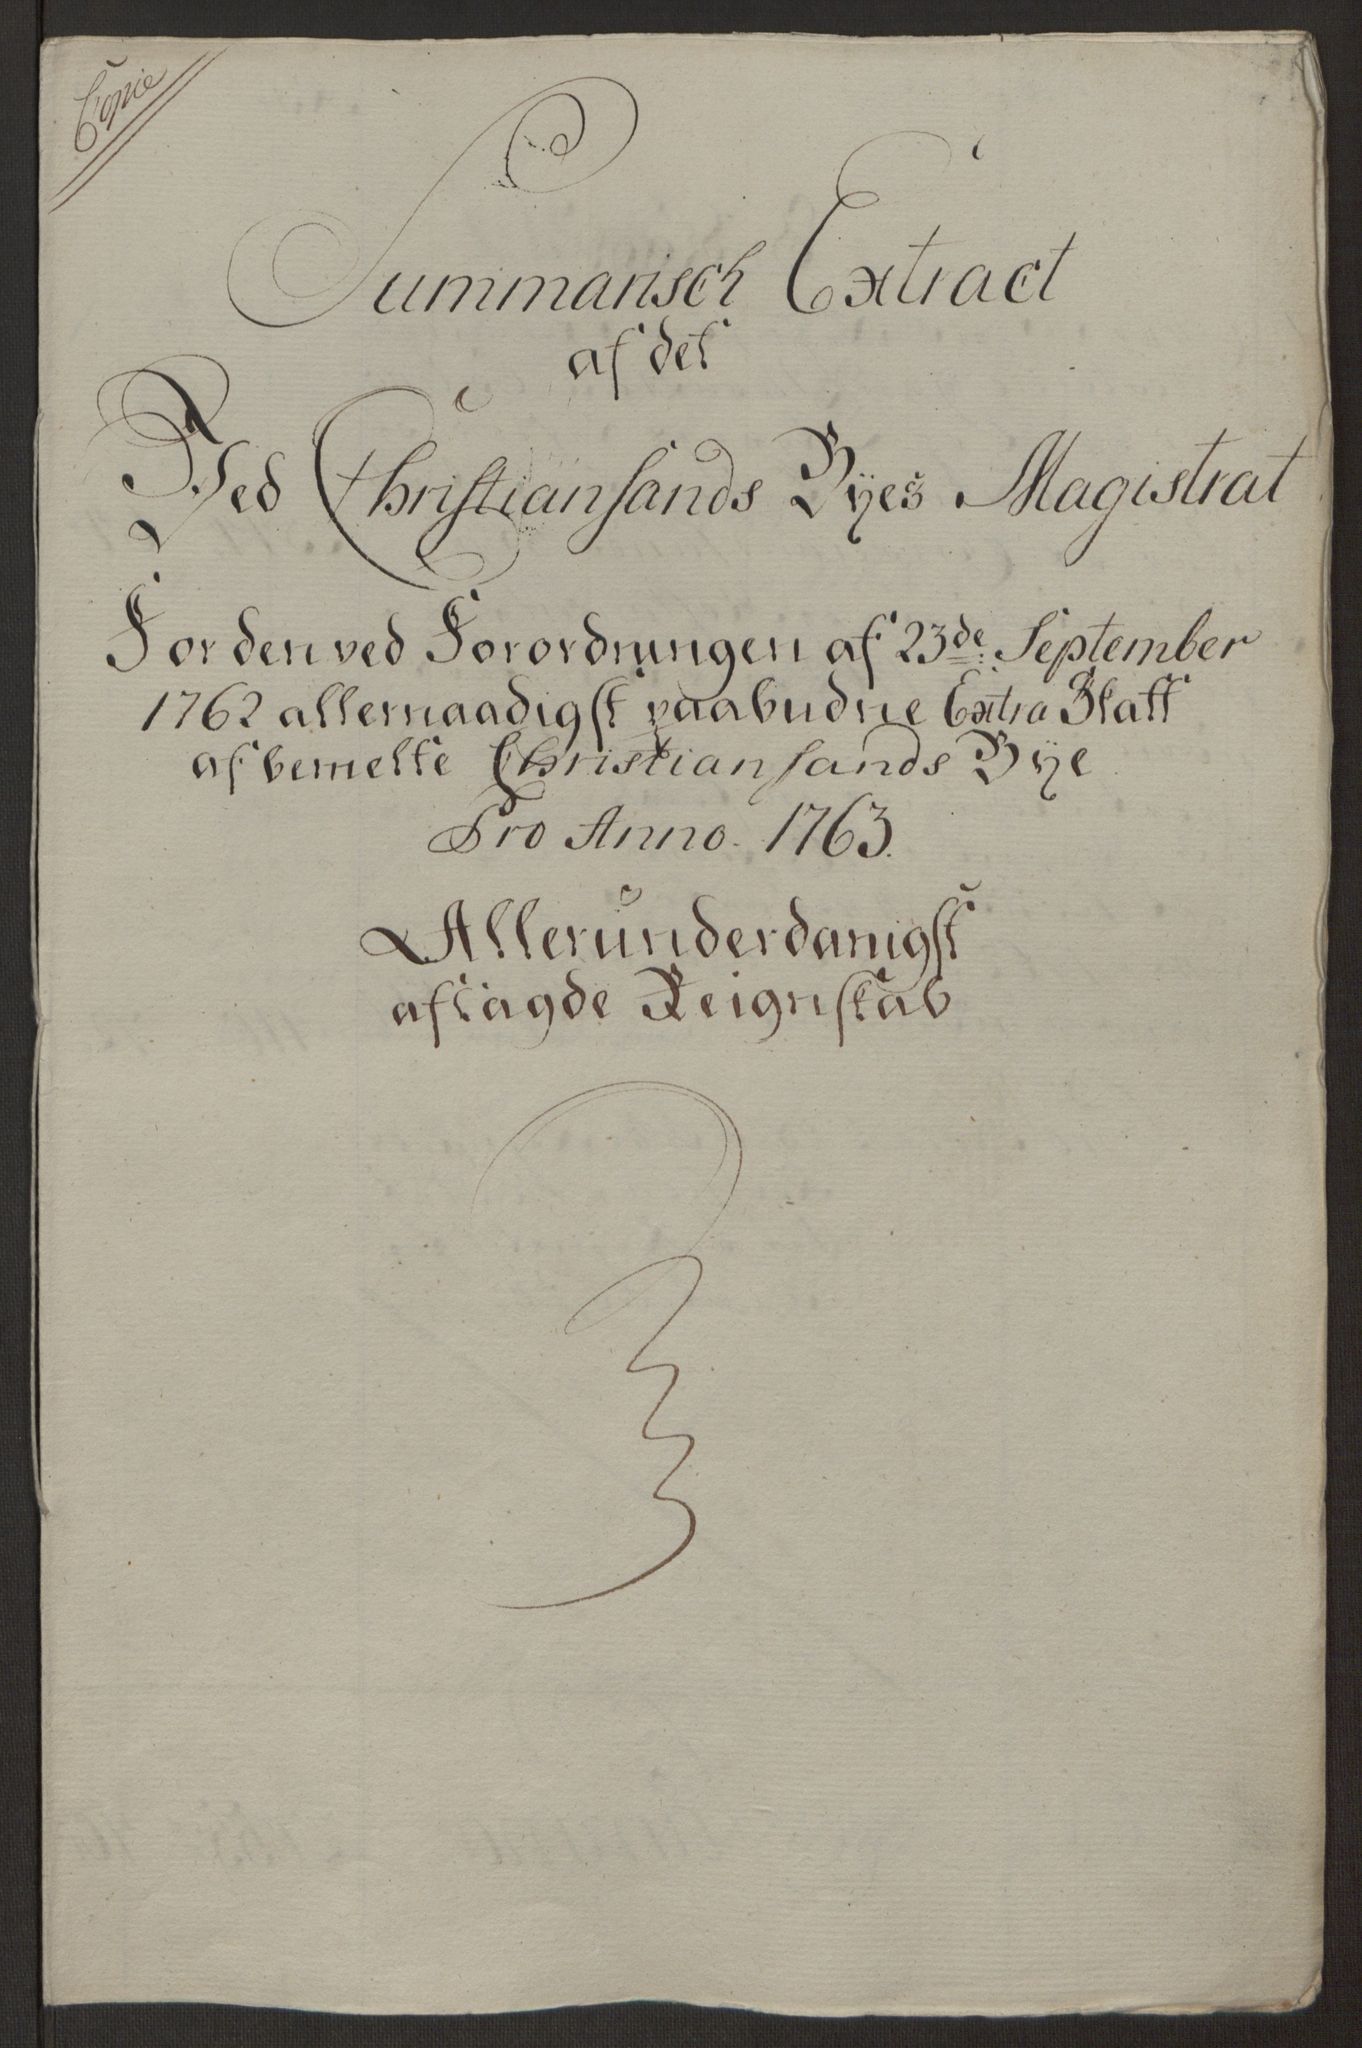 Copie
Summarisch Extract
af det
Ved Christiansands Byes Magistrat
For den ved Forordningen af 23de September
1762 allernaadigst paabudne Extra Skatt
af bemelte Christiansands Bye
Pro Anno. 1763.
Allerunderdanigst
aflagde Reignskab